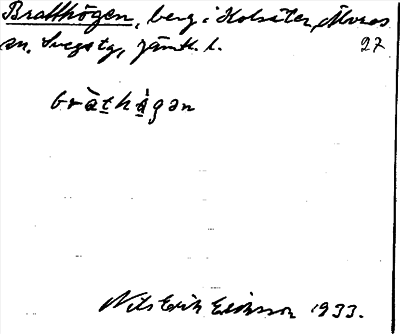 Bratthögen, berg i Kolsäter, Älvros
sn, Svegs tg, Jämtl. l. 27
bràt̲hö̀gən
Nils Erik Eriksson 1933.